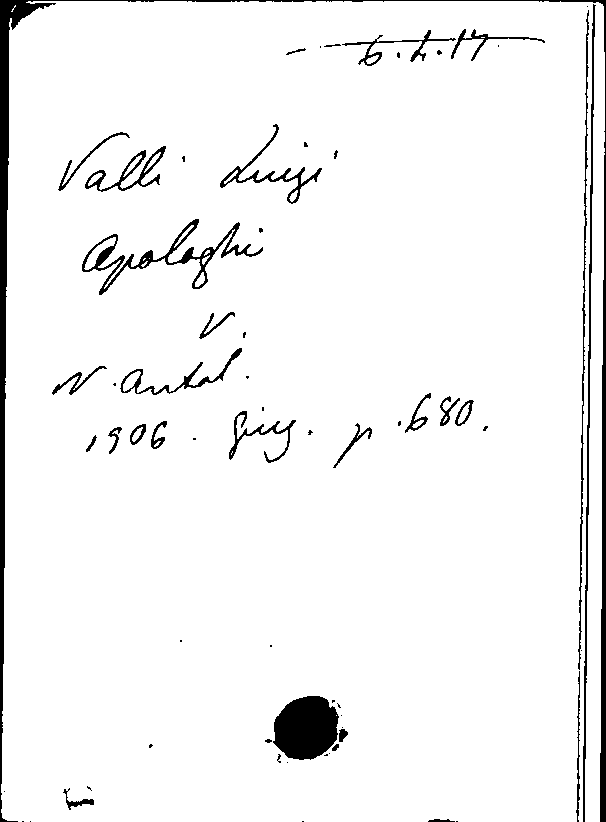 6.4.17
Valli Luigi
Apologhi
V.
N. Antol.
1906. giug. p. 680.